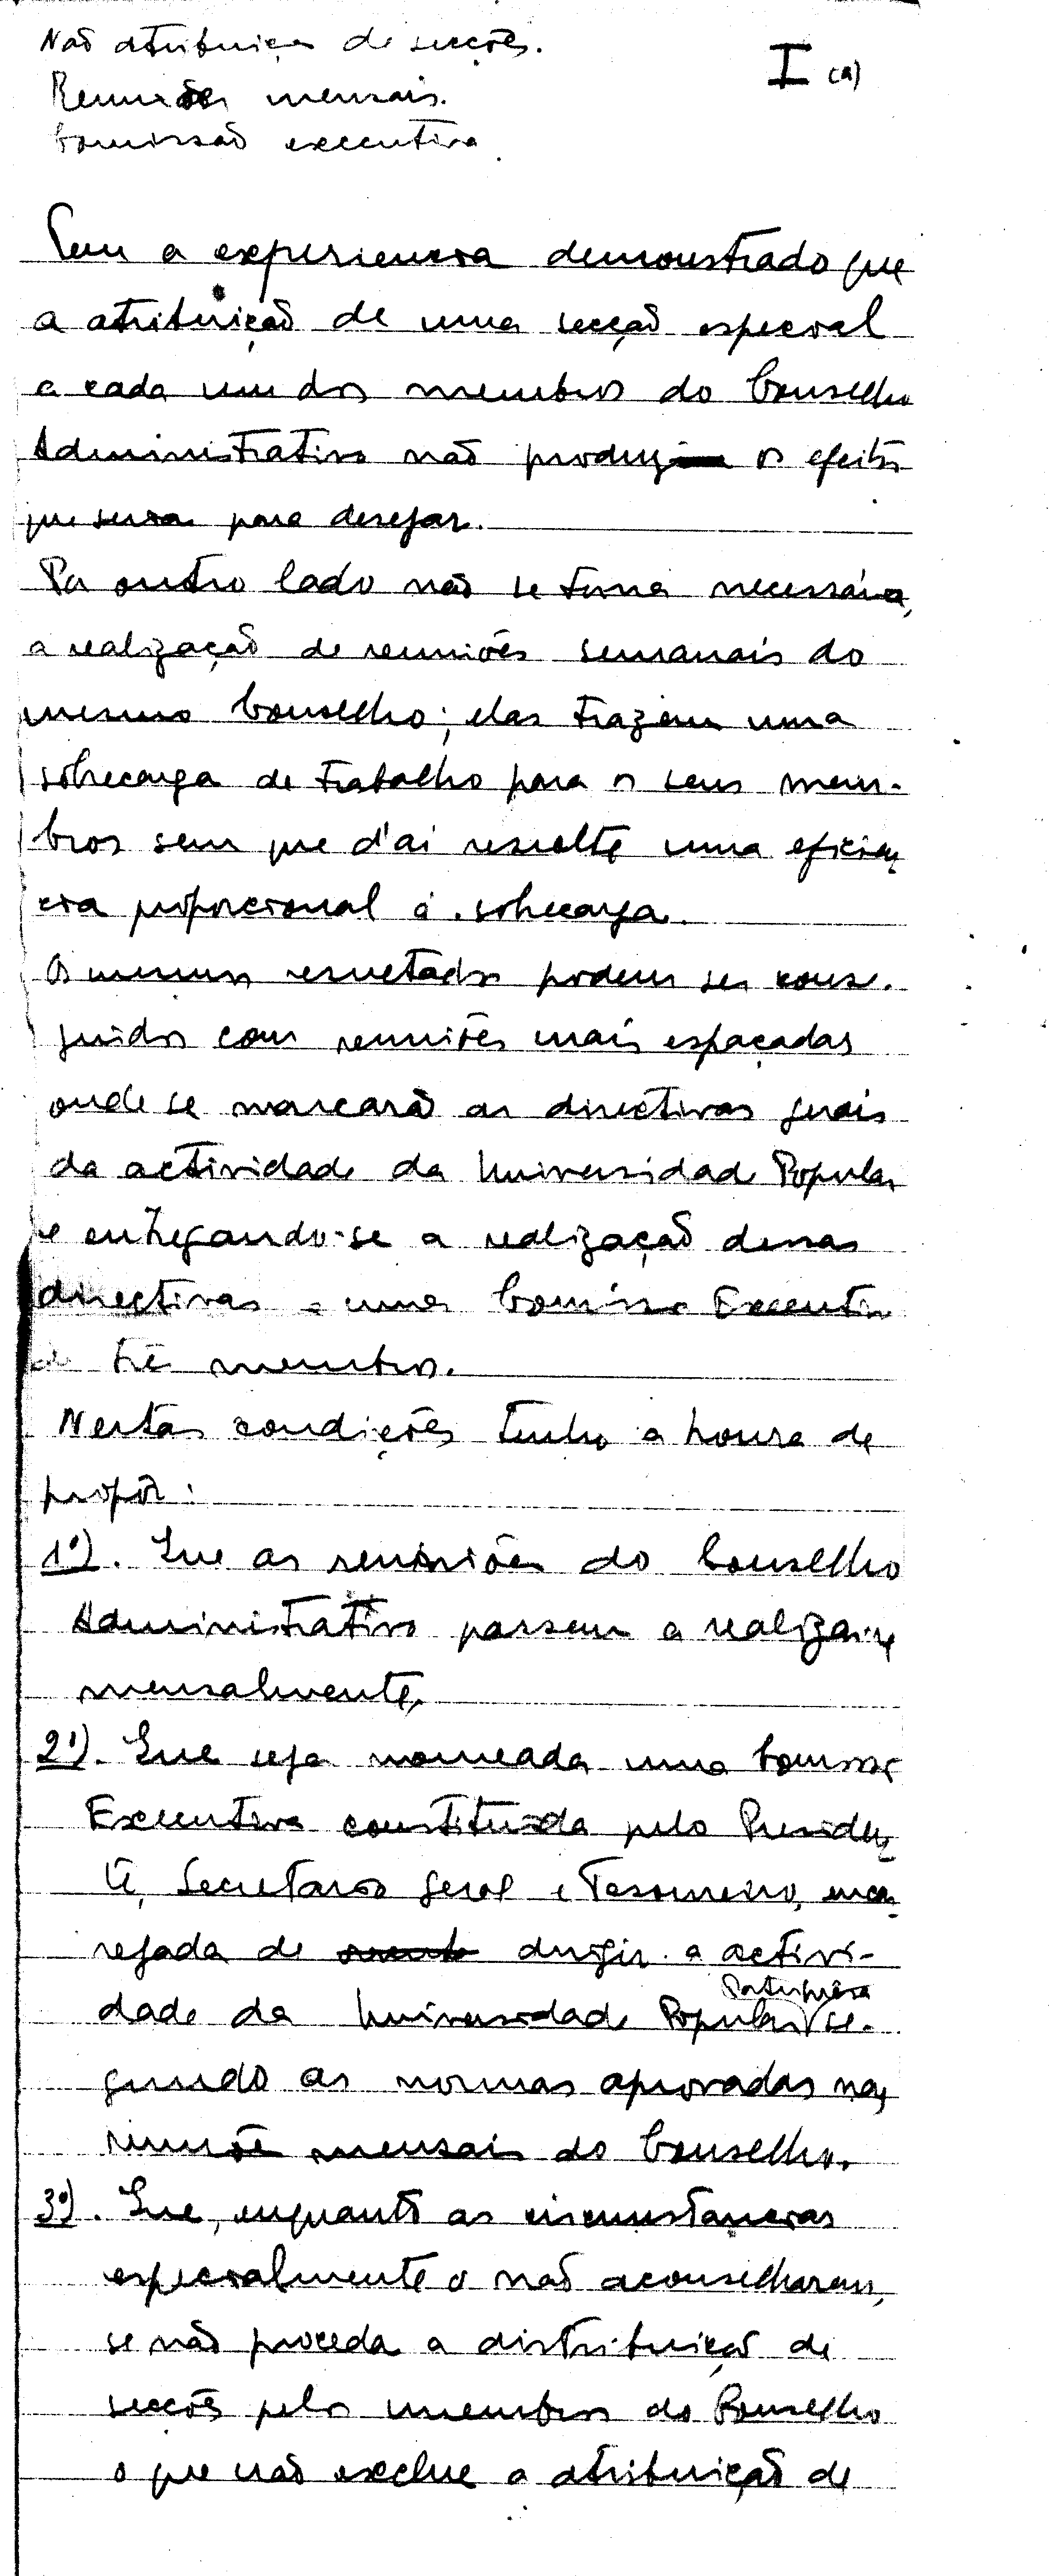 Não atribuição de secções.
I (a)
Reuniões mensais.
Comissão executiva.
Tem a experiencia demonstrado que
a atribuição de uma secção especial
a cada um dos membros do Conselho
Administrativo não produz os efeitos
que seria para desejar.
Por outro lado não se torna necessária,
a realização de reuniões semanais do
mesmo Conselho; elas trazem uma
sobrecarga de trabalho para os seus mem-
bros sem que d'ai resulte uma eficien
cia proporcional á sobrecarga.
Os mesmos resultados podem ser conse-
guidos com reuniões mais espaçadas
onde se marcarão as directivas gerais
da actividade da Universidade Popular
e entregando-se a realização dessas
directivas a uma Comissão Executiva
de três membros.
Nestas condições tenho a honra de
propôr:
1º). Que as reuniões do Conselho
Administrativo passem a realizar-se
mensalmente.
2º). Que seja nomeada uma Comissão
Executiva constituida pelo Presiden
te, Secretario Geral e Tesoureiro, encar
regada de dirigir a activi-
Portuguêsa
dade da Universidade Popular se-
gundo as normas aprovadas nas
reuniões mensais do Conselho.
3º). Que, enquanto as circunstancias
especialmente o não aconselharem,
se não proceda a distribuição de
secções pelos membros do Conselho
o que não exclue a atribuição de